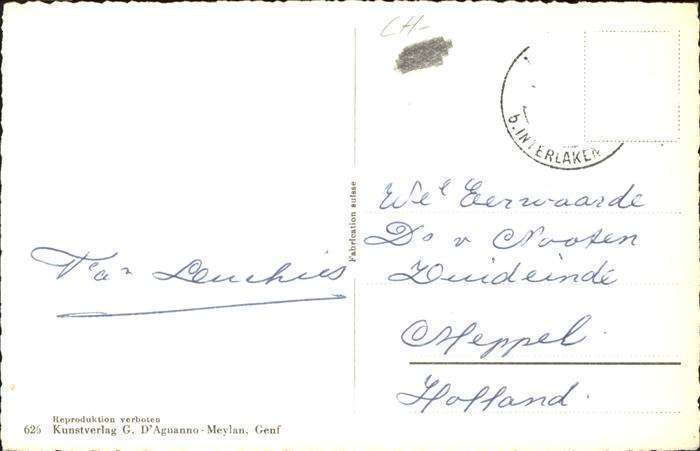 CH-
b. INTERLAKEN
Fabrication suisse
Wel Eerwaarde
Ds v Nooten
Zuideinde
Meppel.
Holland.
Reproduktion verboten
625 Kunstverlag G. D'Aguanno - Meylan, Genf